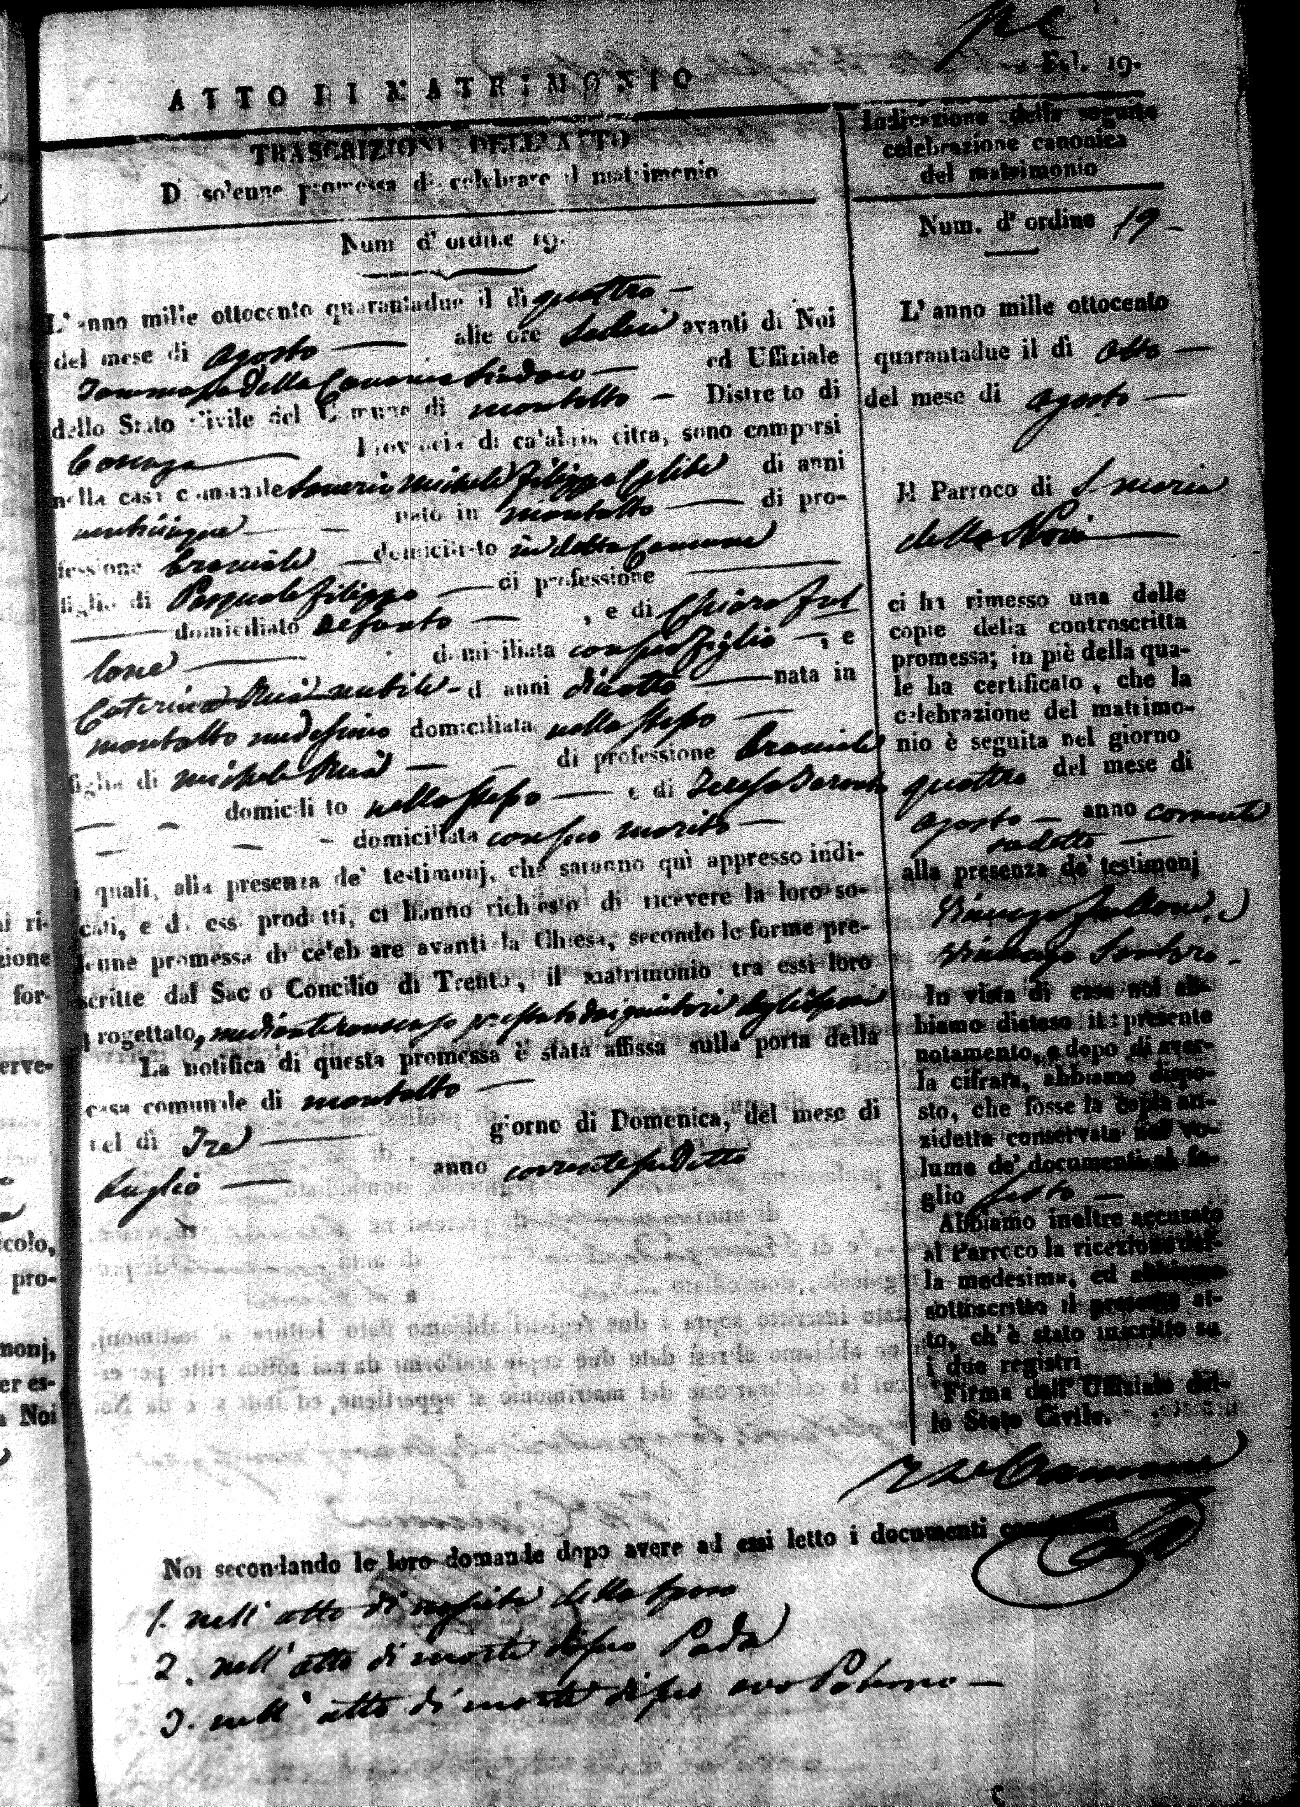 Fol. 19.
ATTO DI MATRIMONIO
TRASCRIZIONE DELL'ATTO
Di solenne promessa di celebrare il matrimonio
Num d'ordine 19.
L'anno mille ottocento quarantadue il dì quattro
del mese di agosto alle ore sedici avanti di Noi
Tommaso della Cananea Sindaco ed Uffiziale
dello Stato Civile del Comune di Montalto Distretto di
Cosenza Provincia di calabria citra, sono comparsi
nella casa comunale Saverio Michele Filippo Celibe di anni
venticinque nato in Montalto di pro-
fessione bracciale domiciliato in detto Comune
figlio di Pasquale Filippo di professione
domiciliato defunto , e di Chiara Ful
lone domiciliata con suo figlio , e
Caterina nubile di anni diciotto nata in
Montalto medesimo domiciliata nello stesso
figlia di Michele di professione bracciale
domiciliato nello stesso e di Teresa
domiciliata con suo marito
i quali, alla presenza de' testimonj, che saranno quì appresso indi-
cati, e da essi prodotti, ci hanno richiesto di ricevere la loro so-
lenne promessa di celebrare avanti la Chiesa, secondo le forme pre-
scritte dal Sacro Concilio di Trento, il matrimonio tra essi loro
progettato, mediante consenso prestato dai genitori degli sposi
La notifica di questa promessa è stata affissa sulla porta della
casa comunale di Montalto
nel dì Tre giorno di Domenica, del mese di
Luglio anno corrente suddetto
Noi secondando le loro domande dopo avere ad essi letto i documenti
1. nell'atto di nascita dello sposo
2. nell'atto di morte di suo Padre
3. nell'atto di morte di suo avo Paterno
Indicazione della seguita
celebrazione canonica
del matrimonio
Num. d'ordine 19
L'anno mille ottocento
quarantadue il dì otto
del mese di agosto
Il Parroco di S. Maria
della
ci ha rimesso una delle
copie della controscritta
promessa; in piè della qua-
le ha certificato, che la
celebrazione del matrimo-
nio è seguita nel giorno
quattro del mese di
agosto anno corrente
sudetto
alla presenza de' testimonj
In vista di essa noi ab-
biamo disteso il presente
notamento, e dopo di aver-
la cifrata, abbiamo dispo-
sto, che fosse la copia an-
zidetta conservata nel vo-
lume de' documenti al fo-
glio sesto
Abbiamo inoltre accusato
al Parroco la ricezione del-
la medesima, ed abbiamo
sottoscritto il presente at-
to, ch'è stato inscritto su
i due registri
Firma dell'Uffiziale del-
lo Stato Civile.